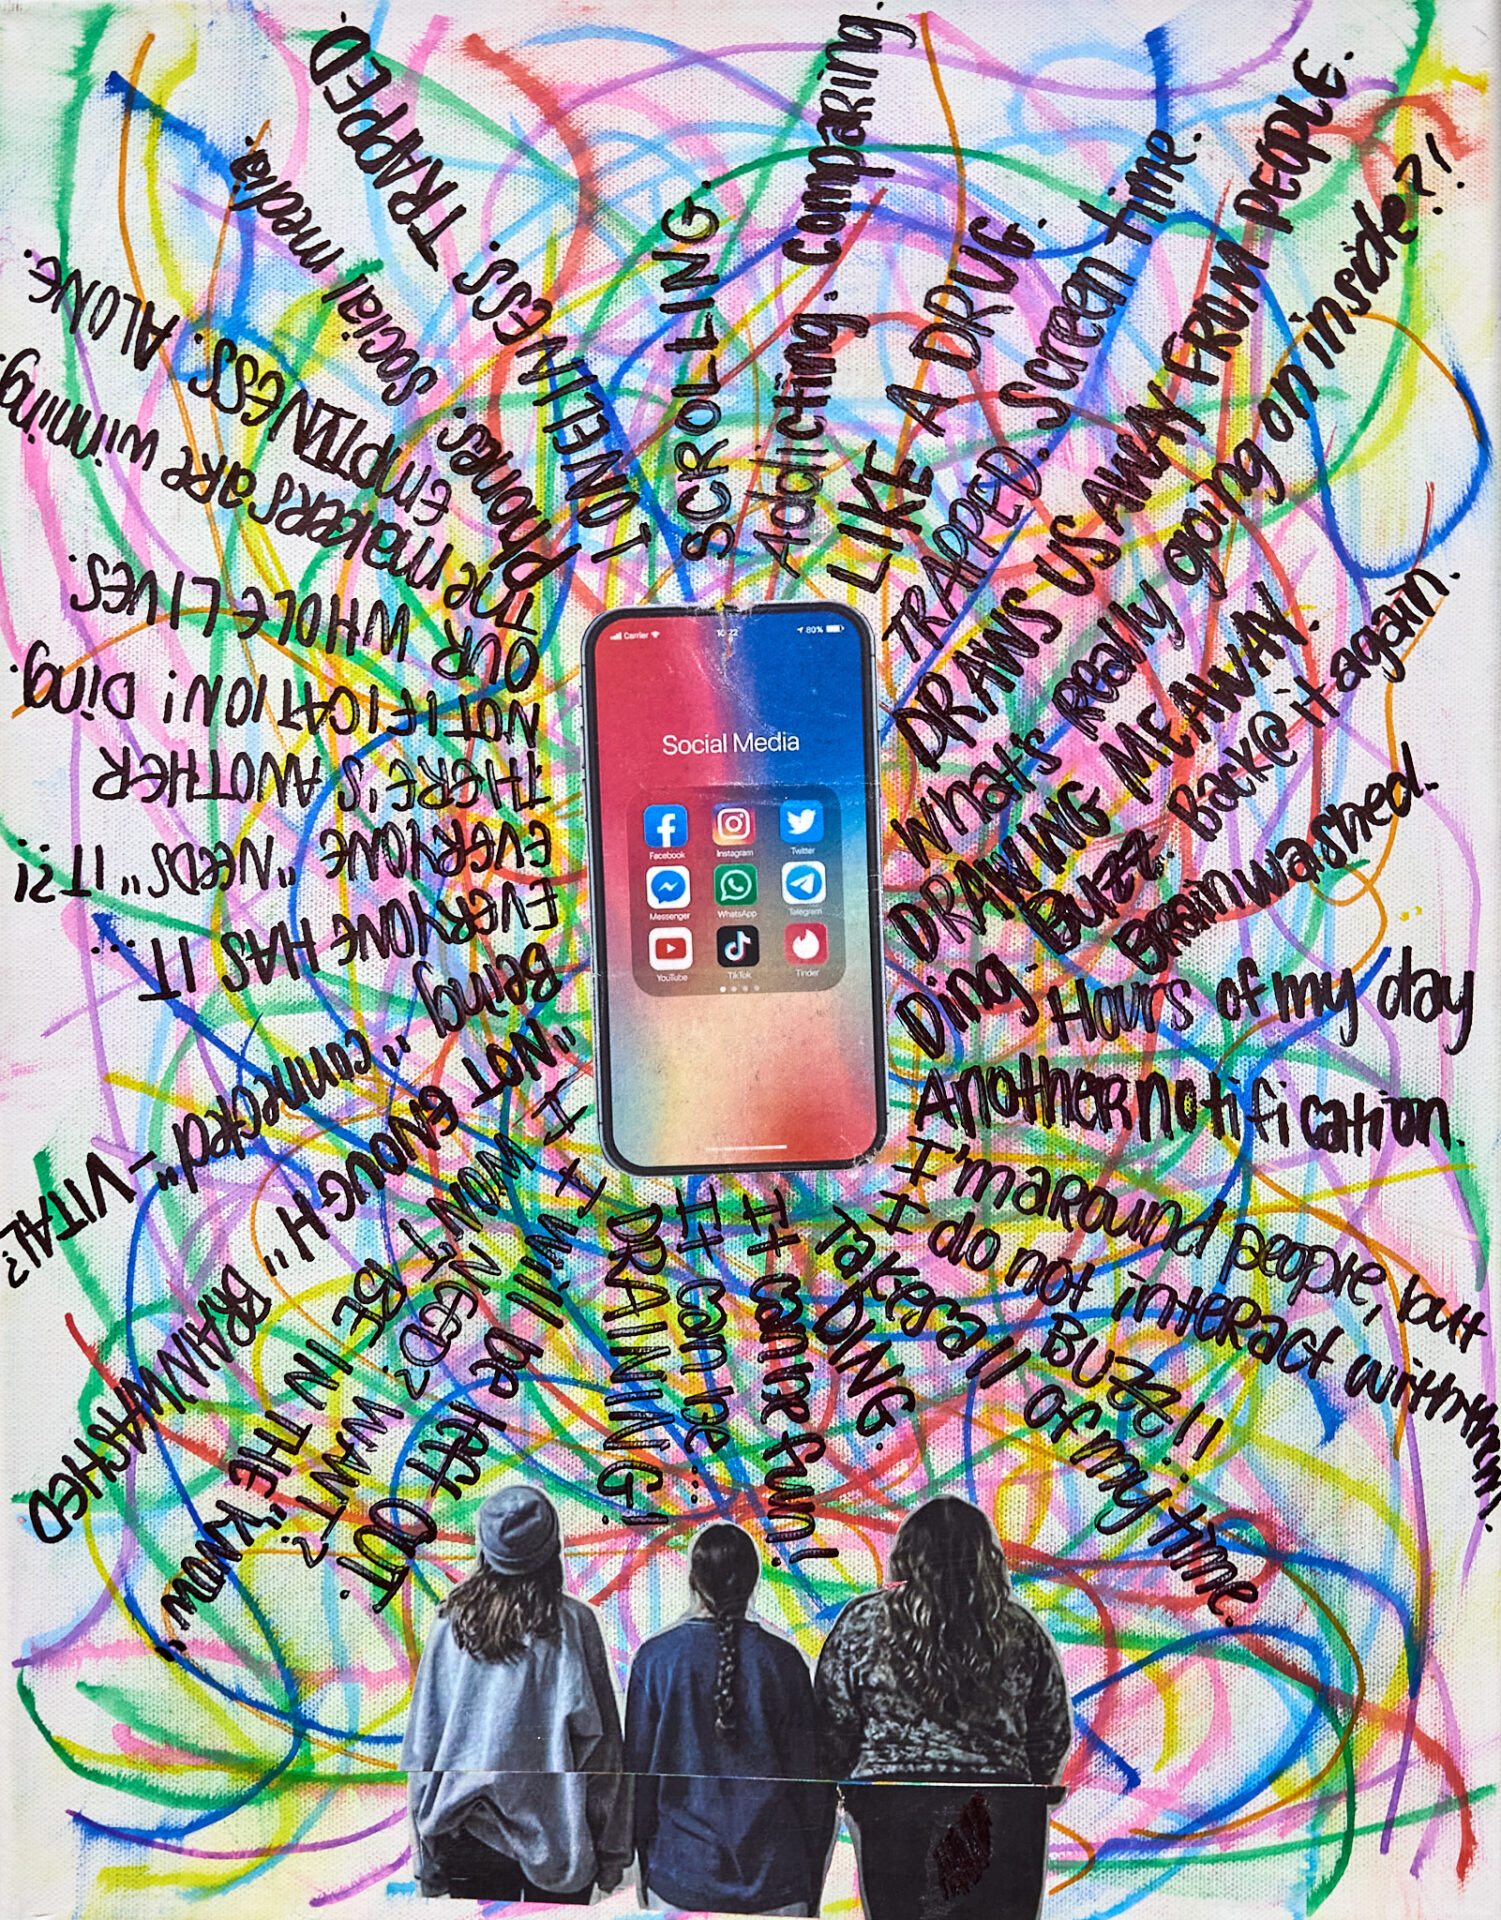 SCROLLING.
Addicting. comparing.
LIKE A DRUG.
TRAPPED. Screen time.
DRAWS US AWAY FROM PEOPLE.
What's really going on inside?!
DRAWING ME AWAY.
Ding. Buzz. Back @ it again.
Brainwashed.
Hours of my day
Another notification.
I'm around people, but
I do not interact with them.
Buzz!!
Takes all of my time.
DING.
It can be fun!
It can be...
DRAINING!
I will be left out.
I WON'T BE IN THE "KNOW"
NEED? WANT?
"NOT ENOUGH"
BRAINWASHED
Being "connected" - VITAL?
EVERYONE HAS IT...
EVERYONE "NEEDS" IT?!
THERE'S ANOTHER
NOTIFICATION! Ding.
OUR WHOLE LIVES.
The makers are winning.
EMPTINESS. ALONE.
Phones. Social media.
LONELINESS. TRAPPED.
Carrier 10:22 89%
Social Media
Facebook Instagram Twitter
Messenger WhatsApp Telegram
YouTube TikTok Tinder